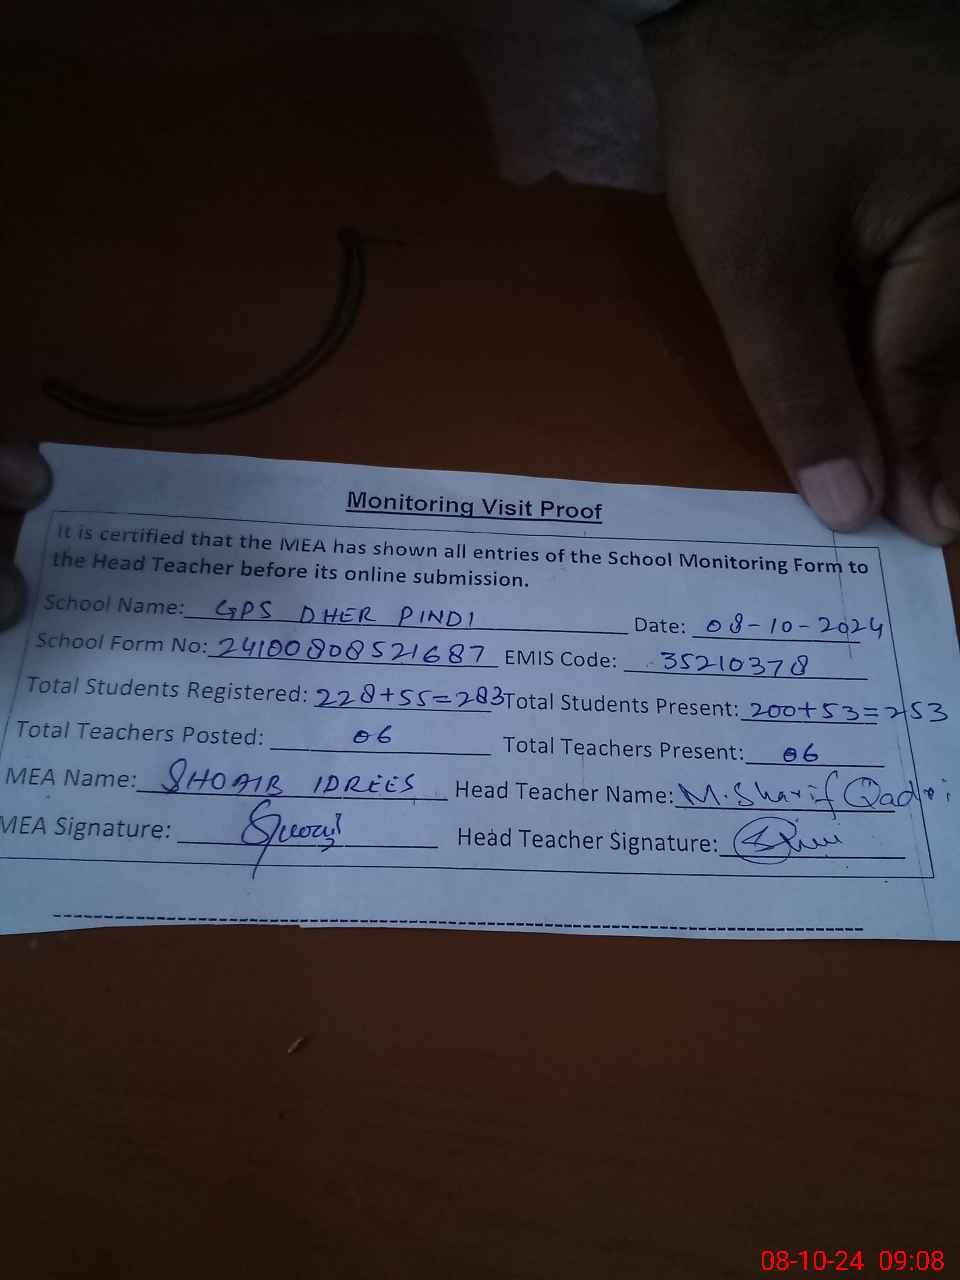 Monitoring Visit Proof
It is certified that the MEA has shown all entries of the School Monitoring Form to
the Head Teacher before its online submission.
School Name: GPS DHER PINDI Date: 08-10-2024
School Form No: 24100808521687 EMIS Code: 35210378
Total Students Registered: 228+55=283 Total Students Present: 200+53=253
Total Teachers Posted: 06 Total Teachers Present: 06
MEA Name: SHOAIB IDREES Head Teacher Name: M. Sharif Qadri
MEA Signature: Head Teacher Signature:
08-10-24 09:08